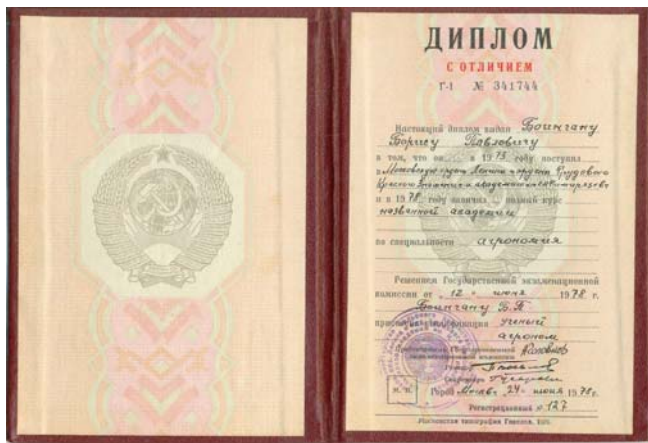 ДИПЛОМ
С ОТЛИЧИЕМ
Г-I № 341744
Настоящий диплом выдан Боинчану
Борису Павловичу
в том, что он в 1973 году поступил
в Московскую ордена Ленина и ордена Трудового
Красного Знамени с.х. академию им. К.А. Тимирязева
и в 1978 году окончил полный курс
названной академии
по специальности агрономия
Решением Государственной экзаменационной
комиссии от „12" июня 1978 г.
Боинчану Б.П.
квалификация ученый
агроном
Председатель Государственной
экзаменационной комиссии
Ректор
Секретарь
М. П. Город Москва 24 июня 1978 г.
Регистрационный № 127
Московская типография Гознака.